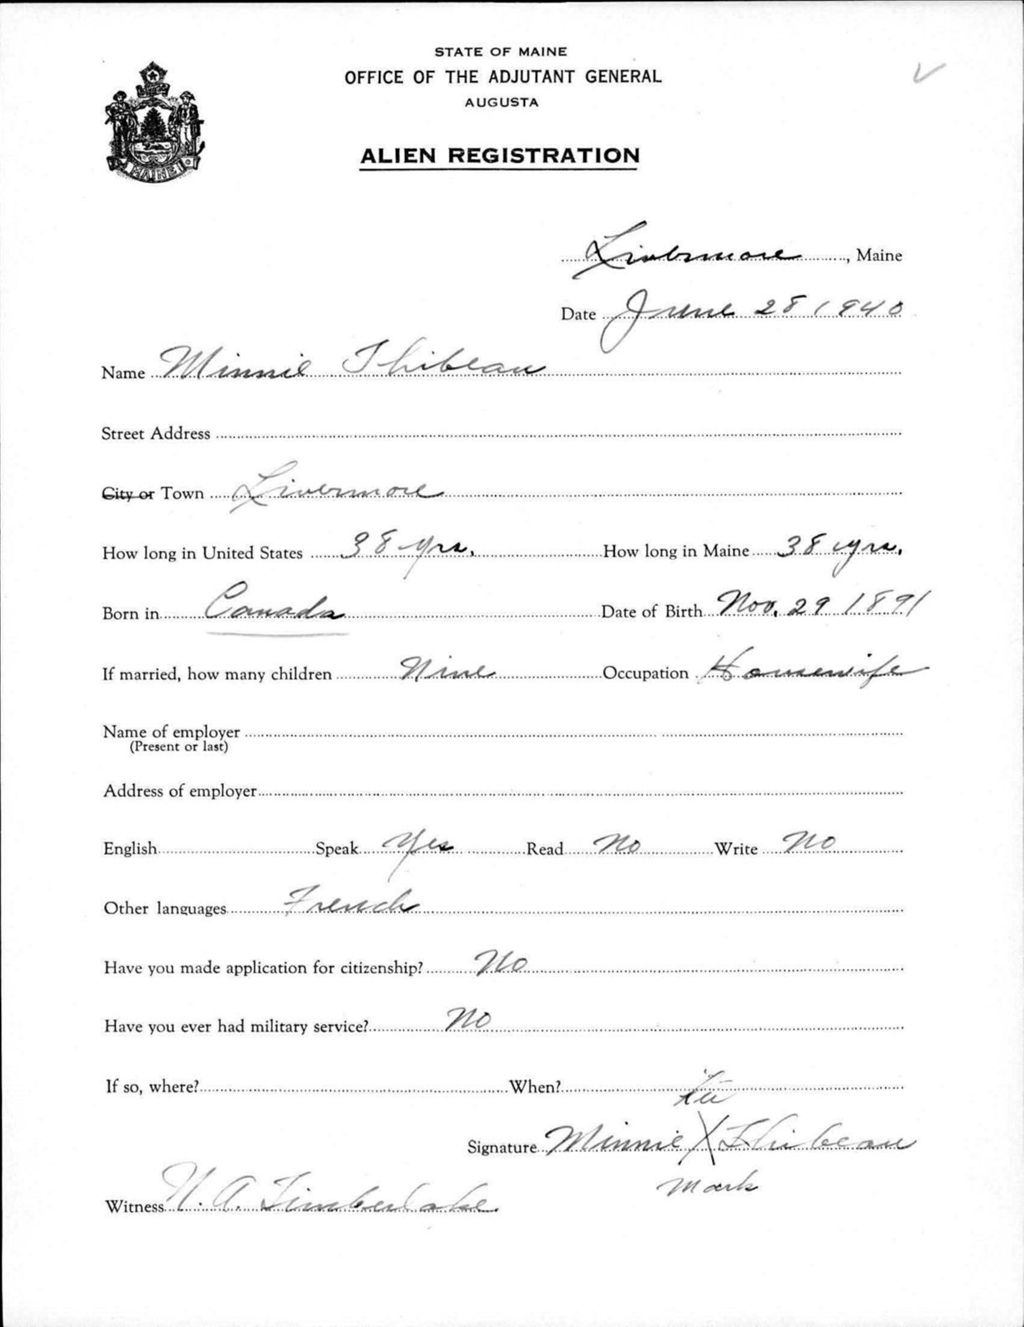 STATE OF MAINE
OFFICE OF THE ADJUTANT GENERAL
AUGUSTA
ALIEN REGISTRATION
MAINE
Livermore, Maine
Date June 28 1940
Name Minnie Thibeau
Street Address
City or Town Livermore
How long in United States 38 yrs. How long in Maine 38 yrs.
Born in Canada Date of Birth Nov. 29 1891
If married, how many children Nine Occupation Housewife
Name of employer
(Present or last)
Address of employer
English Speak Yes Read No Write No
Other languages French
Have you made application for citizenship? No
Have you ever had military service? No
If so, where? When?
Signature Minnie X Thibeau
mark
Witness A. Timberlake